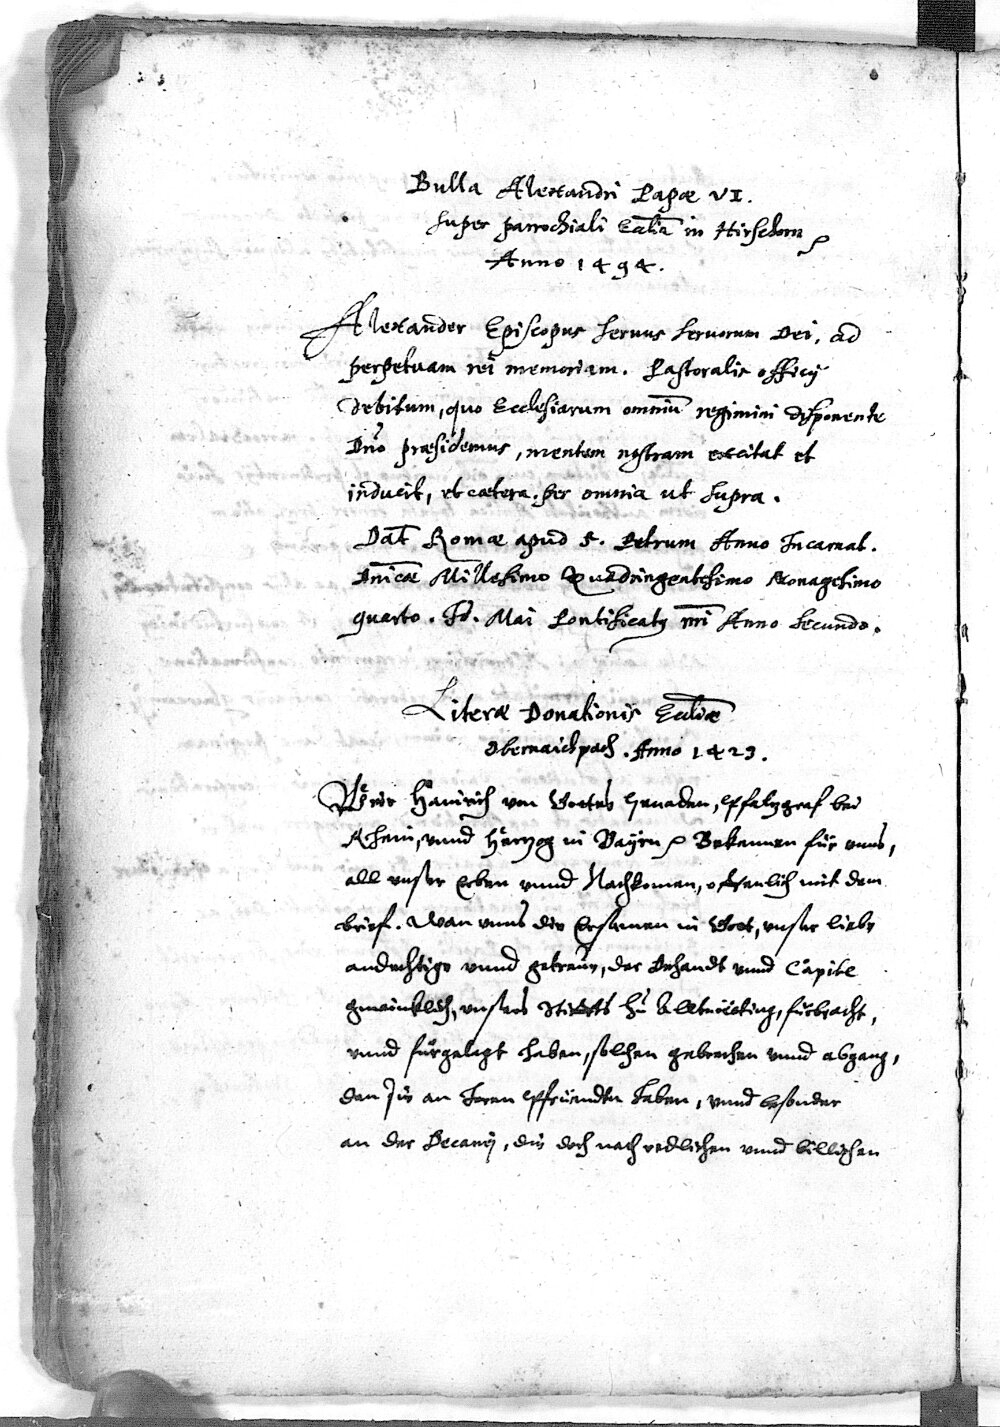 Bulla Alexandri Papæ VI.
super parrochiali Eccliã in Hirschorn
Anno 1494.
Alexander Episcopus servus servorum Dei, ad
perpetuam rei memoriam. Pastoralis officij
debitum, quo Ecclesiarum omniũ regimini disponente
Dño præsidemus, mentem nostram excitat et
inducit, et cætera. per omnia ut supra.
Dat̃ Romæ apud S. Petrum Anno Incarnat.
Dnicæ Millesimo Quadringentesimo Nonagesimo
quarto. Id. Mai Pontificatus nri Anno Secundo.
Literæ Donationis Eccliæ
Obernaichpach. Anno 1423.
Wir Hainrich von Gottes genaden, Pfaltzgraf bei
Rhein, vnnd Hertzog in Bayrn Bekennen für vnns,
all vnser Erben vnnd Nachkomen, offenlich mit dem
brief. Wan vnns die Ersamen in Gott, vnser liebe
andechtige vnnd getreue, der Dehandt vnnd Capitl
gmainklich, vnsers Stiffts zu Alltnötting, fürbracht,
vnnd fürgelegt haben, solchen gebrechen vnnd abgang,
den Sie an Iren Pfrüendten haben, vnnd besonder
an der Decanej, die doch nach redlichen vnnd billichen